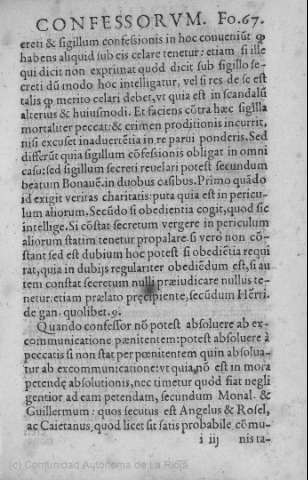 CONFESSORVM. Fo.67.
creti & sigillum confessionis in hoc conueniũt ꝙ
habens aliquid sub eis celare tenetur: etiam si ille
qui dicit non exprimat quòd dicit sub sigillo se-
creti dũ modo hoc intelligatur, vel si res de se est
talis ꝙ merito celari debet, vt quia est in scandalũ
alterius & huiusmodi. Et faciens cõtra hæc sigilla
mortaliter peccat: & crimen proditionis incurrit,
nisi excuset inaduertẽtia in re parui ponderis. Sed
differũt quia sigillum cõfessionis obligat in omni
casu: sed sigillum secreti reuelari potest secundum
beatum Bonauẽ. in duobus casibus. Primo quãdo
id exigit veritas charitatis: puta quia est in pericu-
lum aliorum. Secũdo si obedientia cogit, quod sic
intellige. Si cõstat secretum vergere in periculum
aliorum statim tenetur propalare. si vero non cõ-
stant sed est dubium hoc potest si obediẽtia requi
rat, quia in dubijs regulariter obediẽdum est, si au
tem constat secretum nulli præiudicare nullus te-
netur: etiam prælato præcipiente, secũdum Hẽri.
de gan. quolibet. 9.
Quando confessor nõ potest absoluere ab ex-
communicatione pœnitentem: potest absoluere à
peccatis si non stat per pœnitentem quin absolua-
tur ab excommunicatione: vt quia, nõ est in mora
petendę absolutionis, nec timetur quòd fiat negli
gentior ad eam petendam, secundum Monal. &
Guillermum: quos secutus est Angelus & Rosel,
ac Caietanus, quod licet sit satis probabile, cõ mu-
i iij nis ta-
(c) Comunidad Autónoma de La Rioja